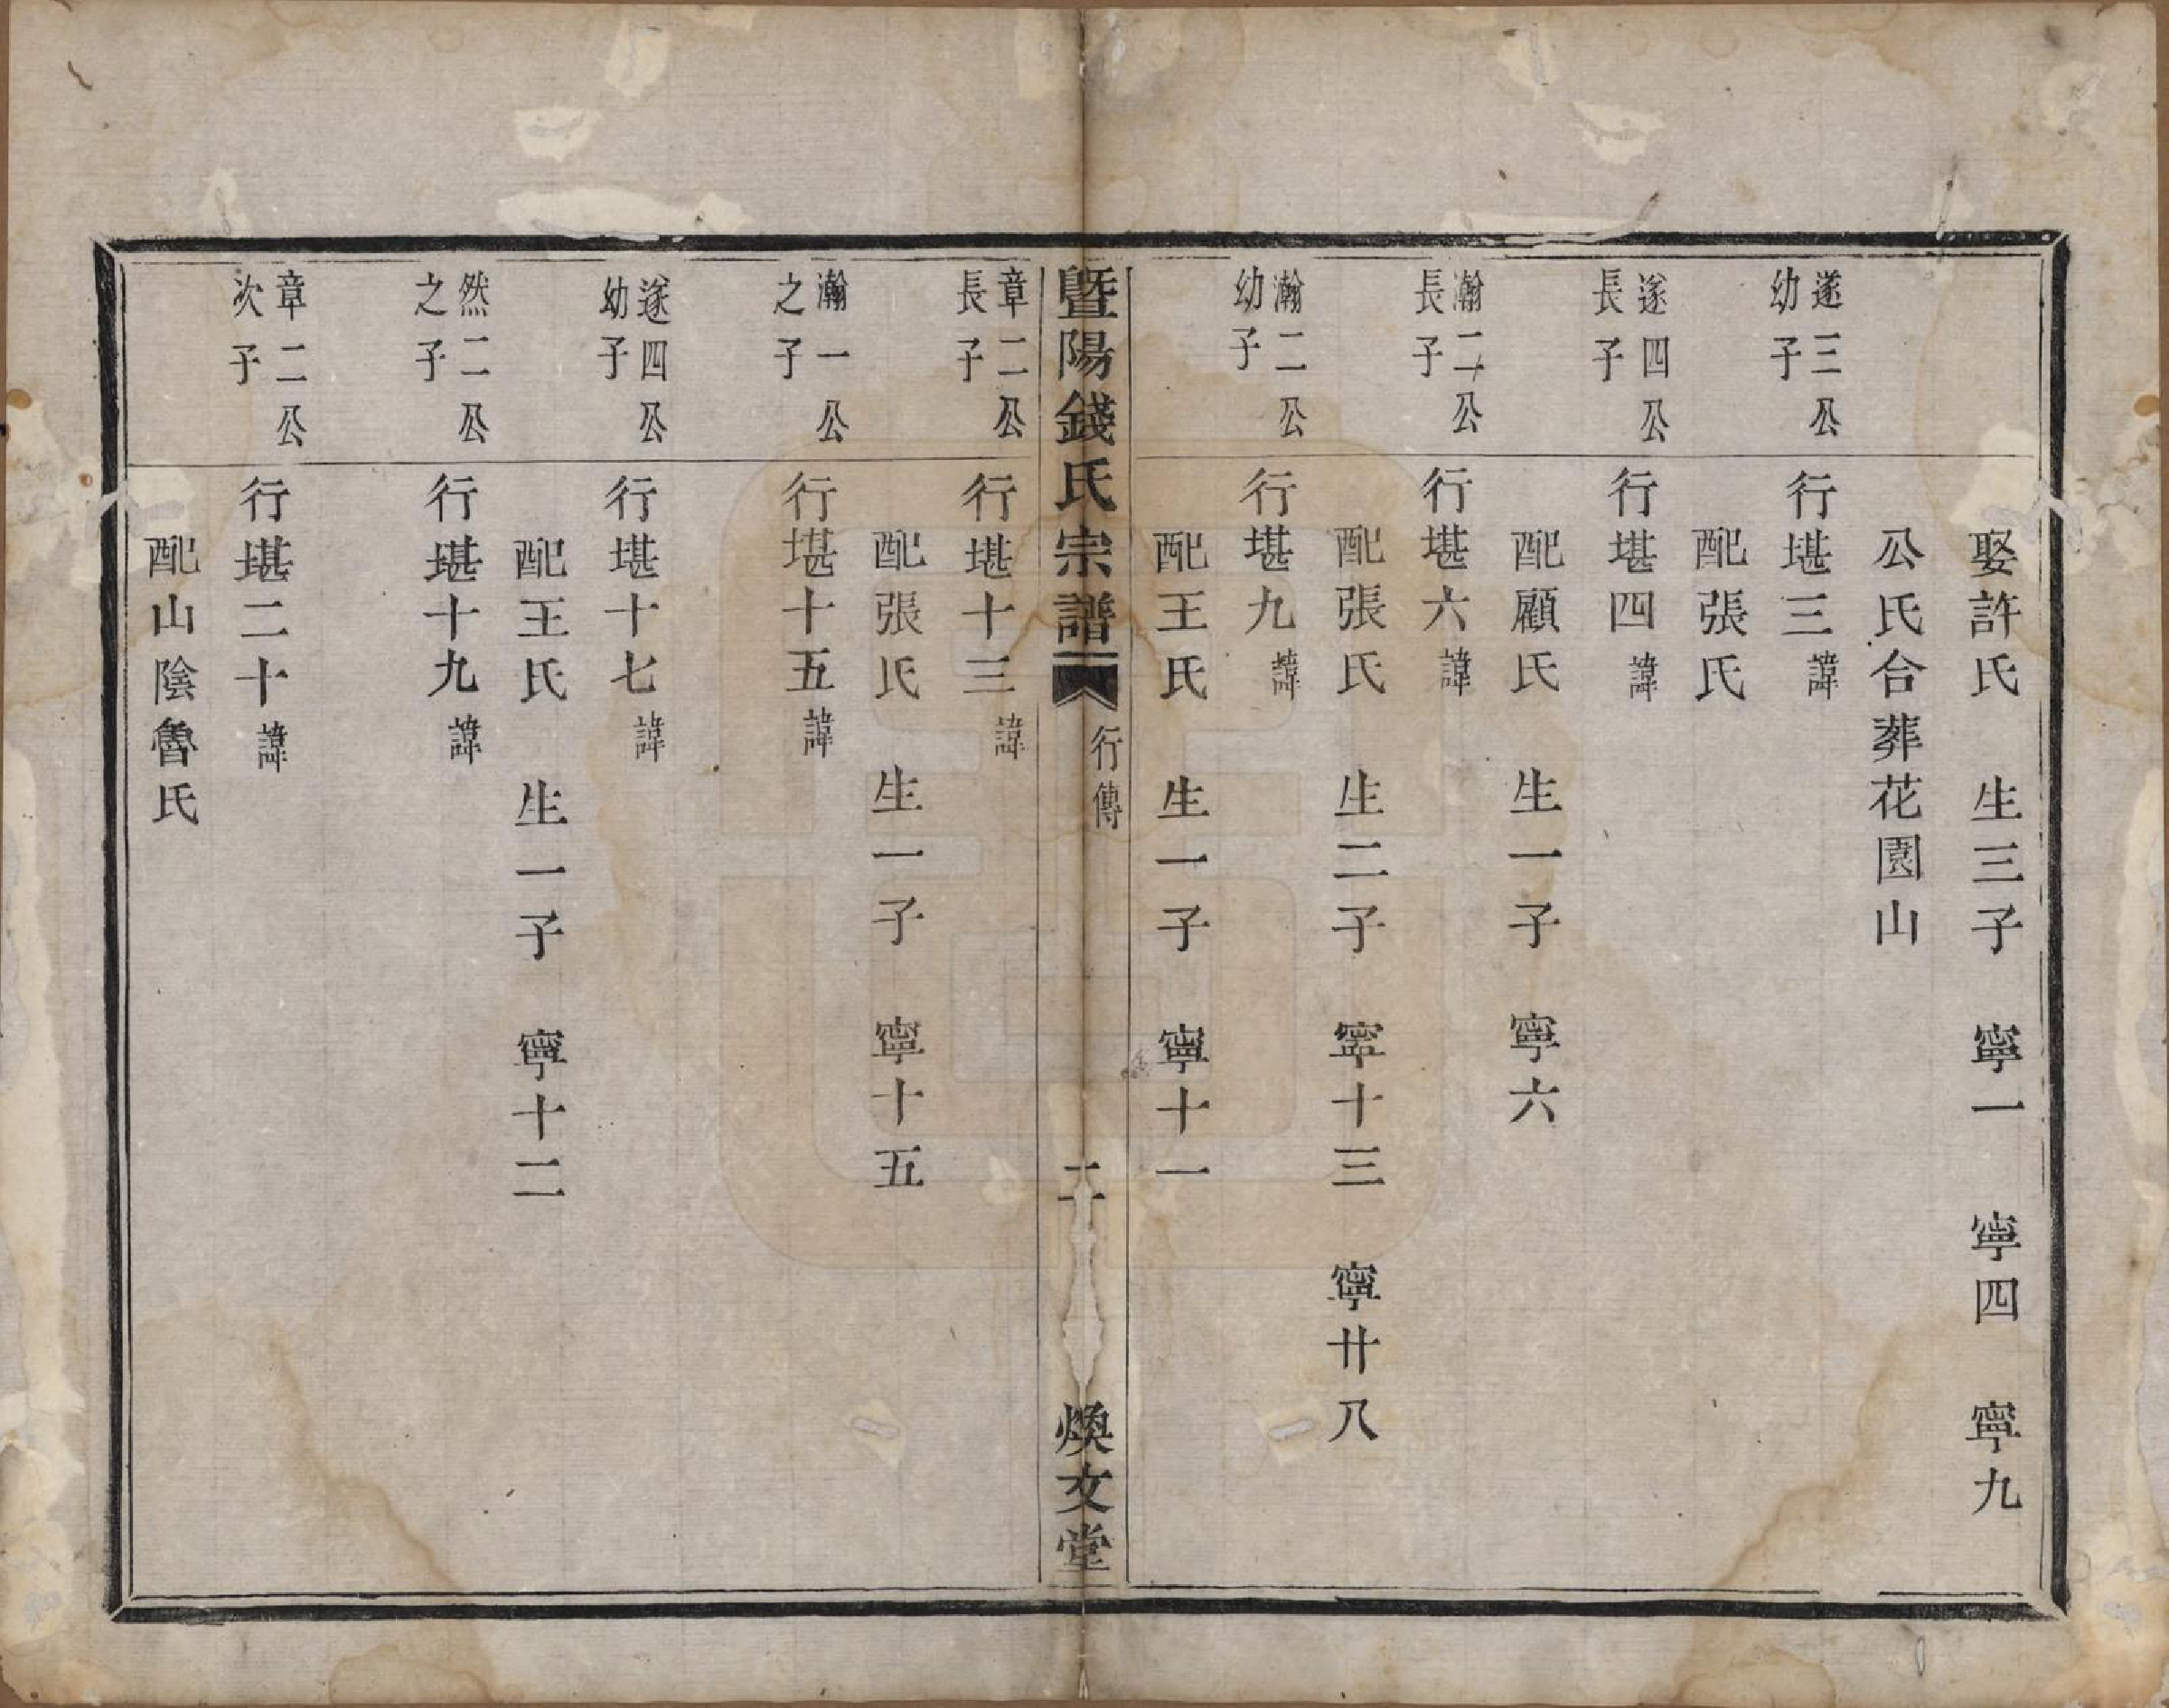 娶許氏　生三子　寧一　寧四　寧九
公氏合葬花園山
遂三公
幼子
行堪三諱
配張氏
遂四公
長子
行堪四諱
配顧氏　生一子　寧六
瀚二公
長子
行堪六諱
配張氏　生二子　寧十三　寧廿八
瀚二公
幼子
行堪九諱
配王氏　生一子　寧十一
暨陽錢氏宗譜　行傳　二十　煥文堂
章二公
長子
行堪十三諱
配張氏　生一子　寧十五
瀚一公
之子
行堪十五諱
遂四公
幼子
行堪十七諱
配王氏　生一子　寧十二
然二公
之子
行堪十九諱
章二公
次子
行堪二十諱
配山陰魯氏